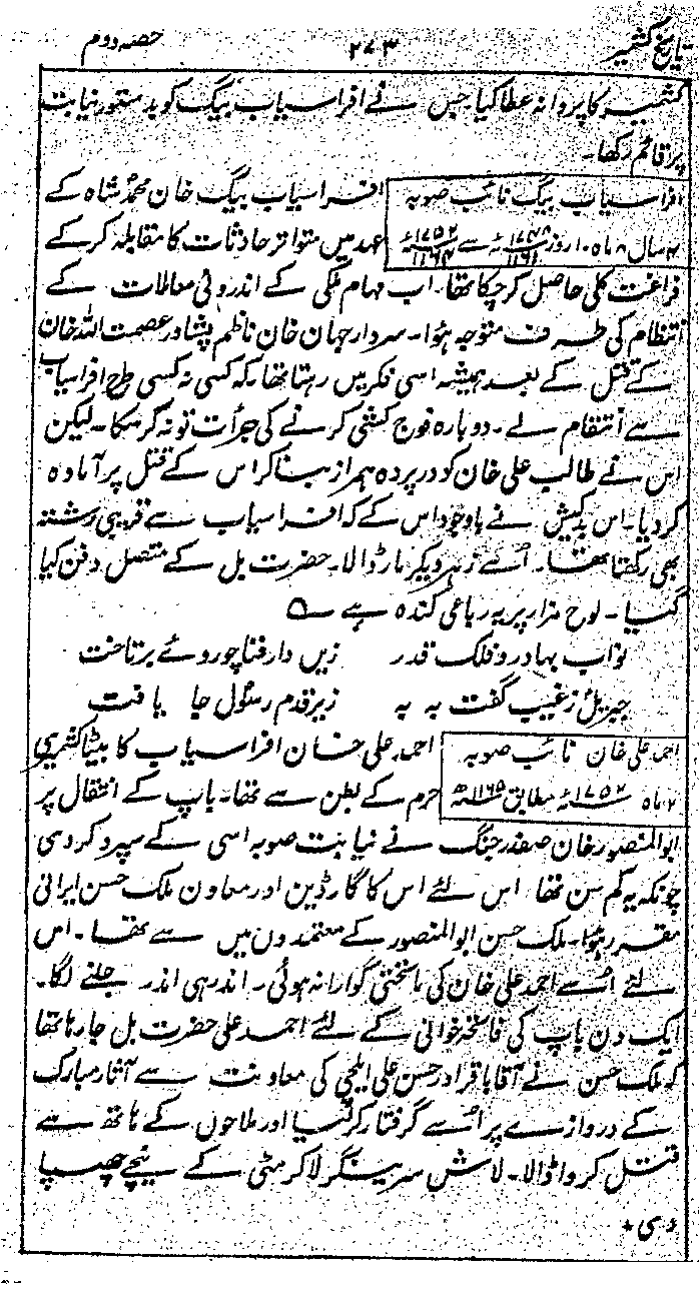 تاریخ کشمیر ۲۷۳ حصہ دوم
کشمیر کا پروانہ عطا کیا جس نے افراسیاب بیگ کو بدستور نیابت
پر قائم رکھا۔
افراسیاب بیگ نائب صوبہ
۴ سال ۸ ماہ ۱۰ روز ۱۷۴۸ء ۱۱۶۱ھ سے ۱۷۵۲ء
افراسیاب بیگ خان محمد شاہ کے
عہد میں متواتر حادثات کا مقابلہ کر کے
فراغت کلی حاصل کر چکا تھا۔ اب مہام ملکی کے اندرونی معاملات کے
انتظام کی طرف متوجہ ہؤا۔ سردار جہان خان ناظم پشاور عصمت اللہ خان
کے قتل کے بعد ہمیشہ اسی فکر میں رہتا تھا کہ کسی نہ کسی طرح افراسیاب
سے انتقام لے۔ دوبارہ فوج کشی کرنے کی جرأت تو نہ کر سکا۔ لیکن
اس نے طالب علی خان کو در پردہ ہمراز بنا کر اس کے قتل پر آمادہ
کر دیا۔ اس بدکیش نے باوجود اس کے کہ افراسیاب سے قریبی رشتہ
بھی رکھتا تھا۔ اُسے زہر دیکر مار ڈالا۔ حضرت بل کے متصل دفن کیا
گیا۔ لوح مزار پر یہ رباعی کندہ ہے ؎
نواب بہادر و فلک قدر زیں دار فنا چو روئے برتاخت
جبریل ز غیب گفت بہ بہ زیر قدم رسول جا یافت
احمد علی خان نائب صوبہ
۲ ماہ ۱۷۵۲ء مطابق ۱۱۶۵ھ
احمد علی خان افراسیاب کا بیٹا کشمیری
حرم کے بطن سے تھا۔ باپ کے انتقال پر
ابوالمنصور خان صفدر جنگ نے نیابت صوبہ اسی کے سپرد کر دی
چونکہ یہ کم سن تھا اس لئے اس کا گارڈین اور معاون ملک حسن ایرانی
مقرر ہؤا۔ ملک حسن ابوالمنصور کے معتمدون میں سے تھا۔ اس
لئے اُسے احمد علی خان کی ماتحتی گوارا نہ ہوئی۔ اندر ہی اندر جلنے لگا۔
ایک دن باپ کی فاتحہ خوانی کے لئے احمد علی حضرت بل جا رہا تھا
کہ ملک حسن نے آقا باقر اور حسن علی ایلچی کی معاونت سے آثار مبارک
کے دروازے پر اُسے گرفتار کر لیا اور ملاحوں کے ہاتھ سے
قتل کروا ڈالا۔ لاش سرینگر لا کر مٹی کے نیچے چھپا
دی٭